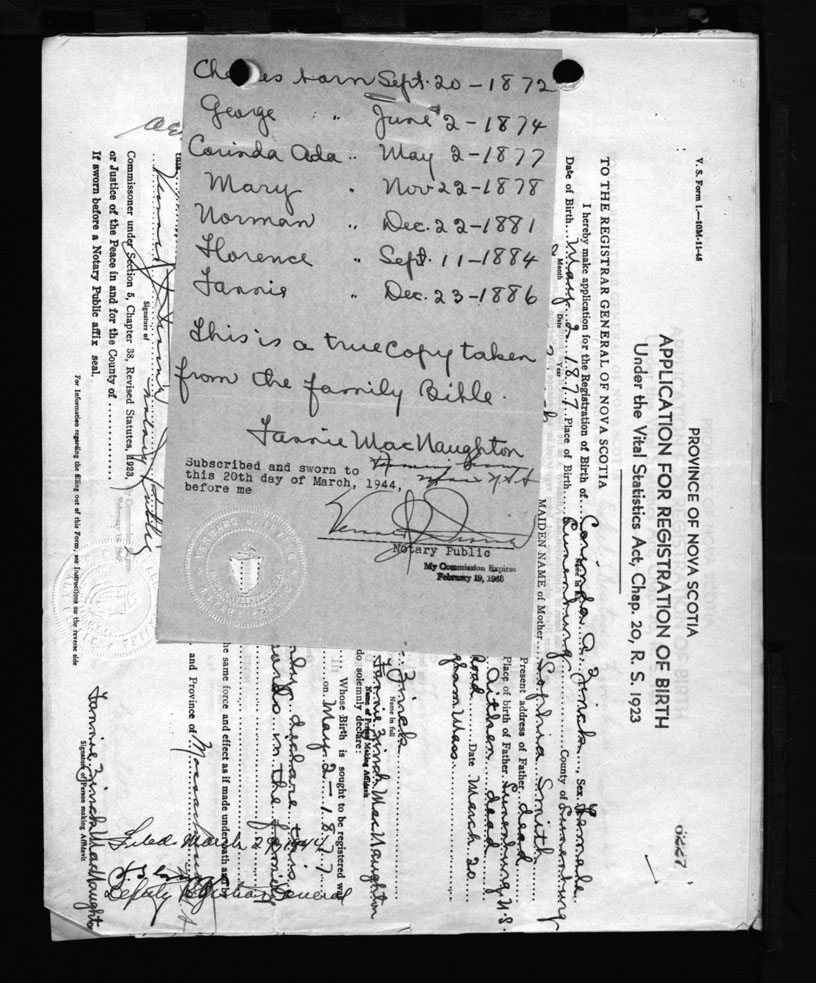 Charles born Sept. 20 - 1872
George " June 2 - 1874
Corinda Ada " May 2 - 1877
Mary " Nov 22 - 1878
Norman " Dec. 22 - 1881
Florence " Sept. 11 - 1884
Fannie " Dec. 23 - 1886
This is a true copy taken
from the family Bible.
Fannie MacNaughton
Subscribed and sworn to
this 20th day of March, 1944,
before me
Notary Public
My Commission Expires
February 19, 1948
V. S. Form 1.—10M-11-43
PROVINCE OF NOVA SCOTIA
APPLICATION FOR REGISTRATION OF BIRTH
Under the Vital Statistics Act, Chap. 20, R. S. 1923
6227
TO THE REGISTRAR GENERAL OF NOVA SCOTIA
I hereby make application for the Registration of Birth of Corinda A. Zinck, Sex Female
Date of Birth May 2 1877 Place of Birth Lunenburg County of Lunenburg
Month Date Year
MAIDEN NAME of Mother Sophia Smith
Present address of Father dead
Place of birth of Father Lunenburg, N.S.
dead
Road Date March 20
Mass
Zinck
Name in full
Fannie Zinck MacNaughton
Name of Person Making Affidavit
do solemnly declare:
Whose Birth is sought to be registered was
on May 2 - 1877
declare this
in the family
the same force and effect as if made under oath
and Province of
Signature of
Commissoner under Section 5, Chapter 38, Revised Statutes, 1923,
or Justice of the Peace in and for the County of
If sworn before a Notary Public affix seal.
Fannie Zinck MacNaughton
Signature of Person making Affidavit
For Information regarding the filling out of this Form, see Instructions on the reverse side
Filed March 1944
Deputy Registrar General